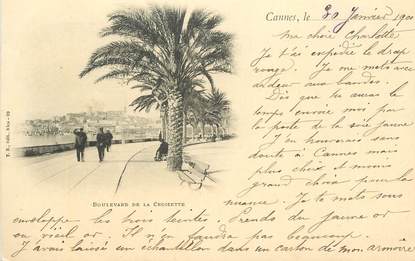 Cannes, le 30 Janvier 1900
Ma chère Charlotte
Je t'ai expédié le drap
rouge. Je me mets avec
ardeur aux bandes.
Dès que tu auras le
temps envoie moi par
la poste de la soie jaune
J'en trouverais sans
doute à Cannes mais
plus choix et moins
grand choix pour la
nuance. Je te mets sous
enveloppe les trois teintes. Prends du jaune or
ou vieil or. Il n'en faudra pas beaucoup.
J'avais laissé un échantillon dans un carton de mon armoire
BOULEVARD DE LA CROISETTE